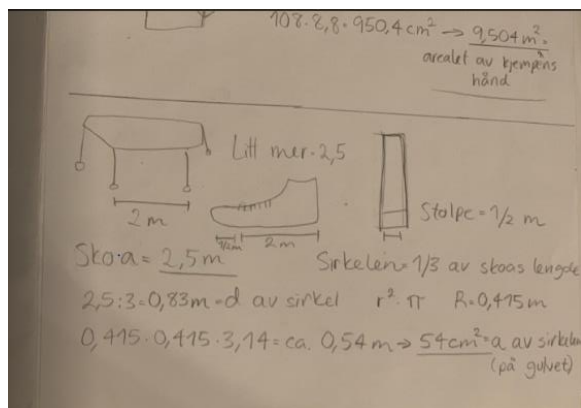 108·8,8·950,4cm² → 9,504m²=
arealet av kjempens
hånd
Litt mer·2,5
2 m
1/2m 2m
Stolpe=1/2 m
Sko·a= 2,5m
Sirkelen=1/3 av skoas lengde
2,5:3=0,83m=d av sirkel r²·π R=0,415m
0,415·0,415·3,14=ca. 0,54m→ 54cm²=a av sirkelen
(på gulvet)